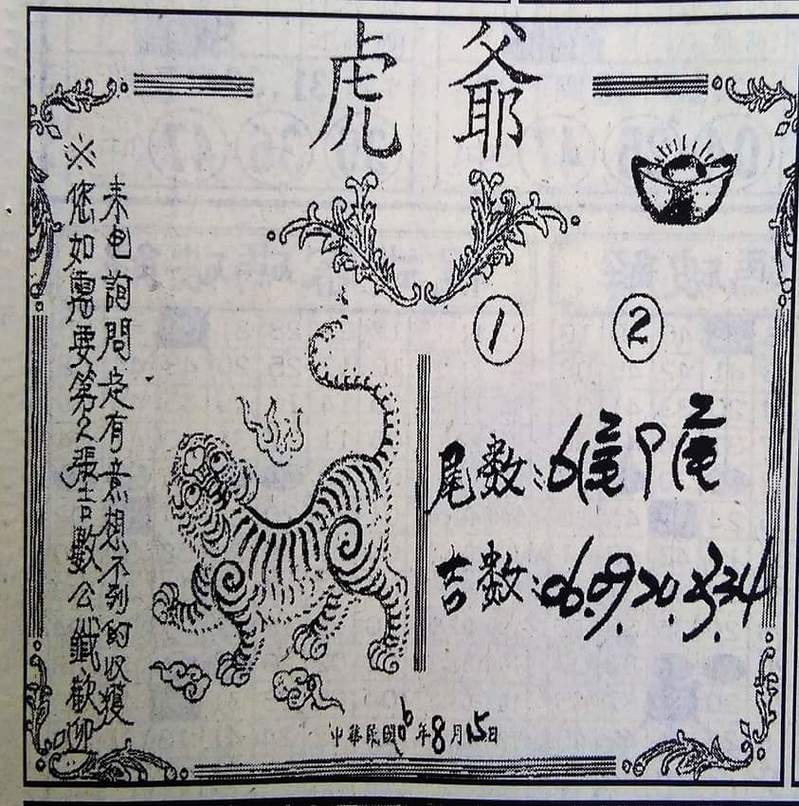 虎爺
① ②
※您如需要第久張吉數公鐵歡迎
來电詢問定有意想不到的收獲
尾数:6尾9尾
吉数:06.09.20.33.34
中華民國 年8月15日